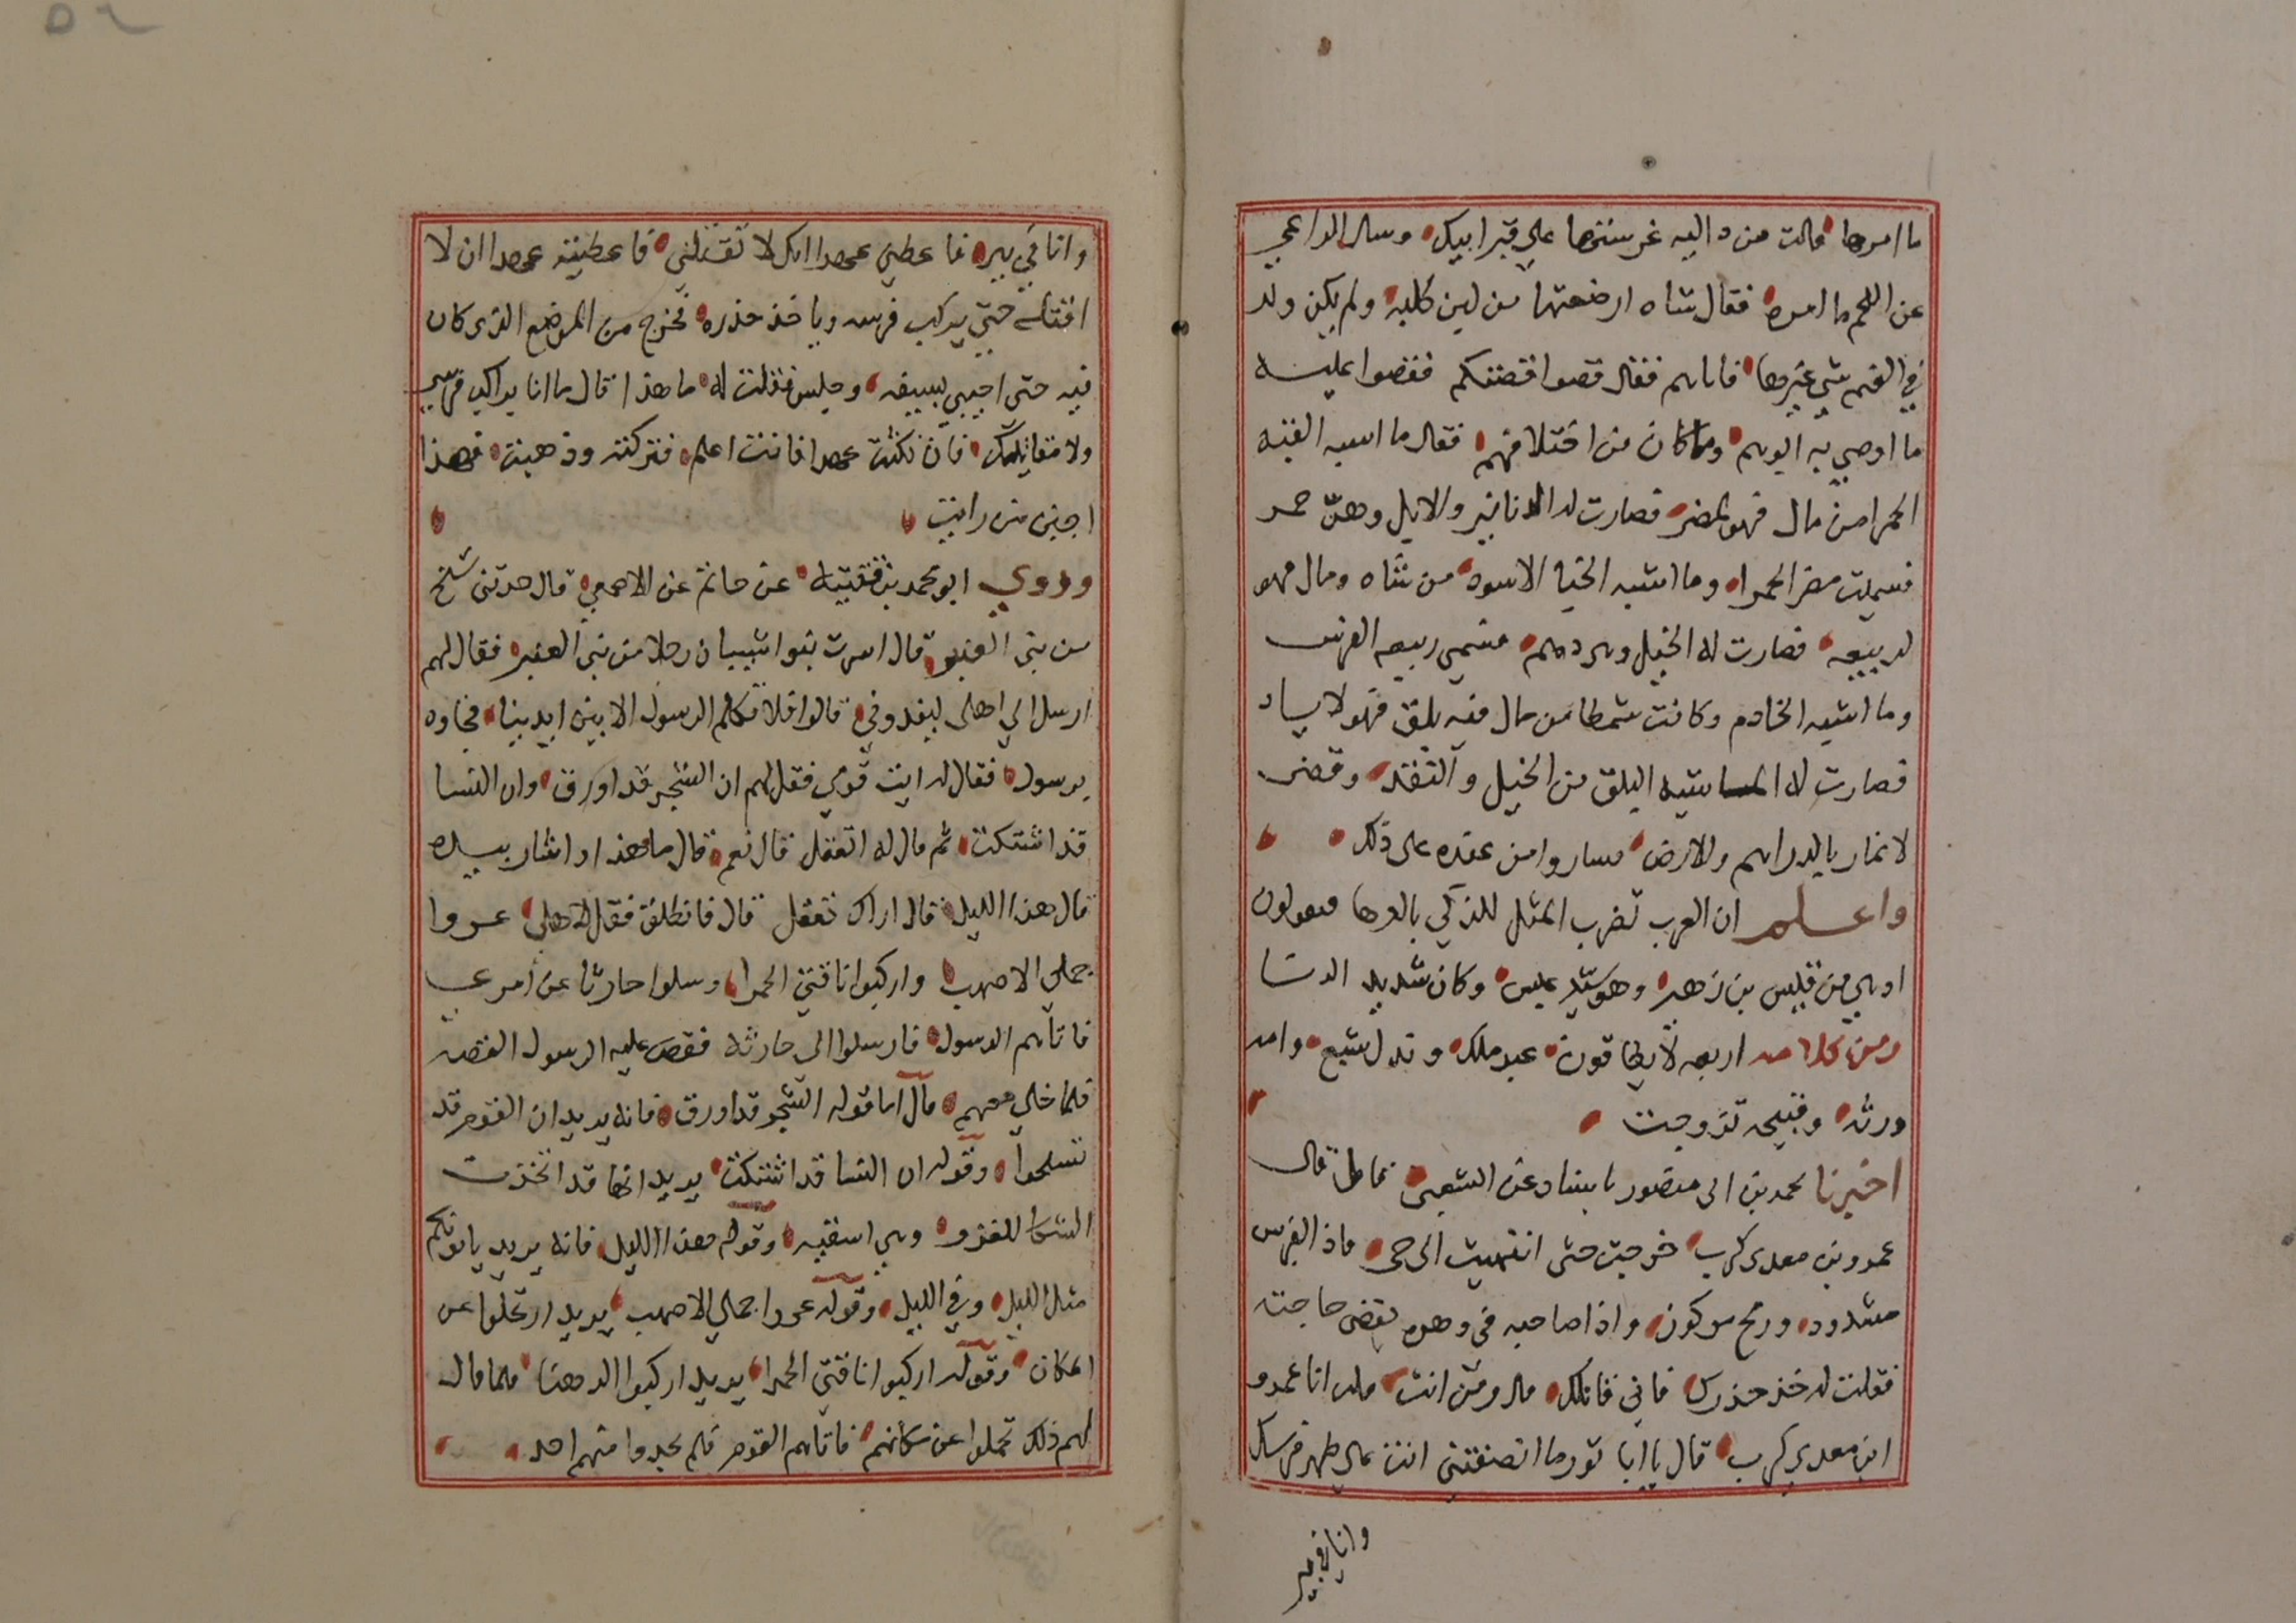 ما امرها قالت من دالية غرستها علي قبر ابيك وسال الراعي
عن اللحم ما امره فقال شاه ارضعتها من لبن كلبه ولم يكن ولد
في الغنم شي غيرها فاتاهم فقال قصوا قصتكم فقصوا عليه
ما اوصي به ابوهم وما كان من اختلافهم فقال ما اشبه القبه
الحمرا من مال فهو لمضر فصارت له الدنانير والابل وهنّ حمر
فسميت مضر الحمرا وما اشبه الخبا الاسود من شاه ومال فهو
لربيعه فصارت له الخيل وهي دهم فسمي ربيعه الفرس
وما اشبه الخادم وكانت شمطا من مال فيه بلق فهو لاياد
فصارت له الماشيه البلق من الخيل والنقد وقضى
لانمار بالدراهم والارض فساروا من عنده على ذلك
واعلم ان العرب تضرب المثل للذكي بالدها فيقولون
ادهي من قيس بن زهير وهو سيد عبس وكان شديد الدها
ومن كلامه اربعه لا يطاقون عبد ملك ونذل شبع وامه
ورثت وقبيحه تزوجت
اخبرنا محمد بن ابي منصور باسناد عن الشعبي قال
عمرو بن معدي كرب خرجت حتى انتهيت الى حي فاذا بفرس
مشدود ورمح مركوز واذا صاحبه في وهده يقضى حاجته
فقلت له خذ حذرك فاني قاتلك قال ومن انت قلت انا عمرو
ابن معدي كرب قال يا ابا ثور ما انصفتني انت على ظهر فرسك
وانا في بير
وانا في بير فاعطني عهدا انك لا تقتلني فاعطيته عهدا ان لا
اقتله حتي يركب فرسه وياخذ حذره فخرج من الموضع الذي كان
فيه حتى احتبي بسيفه وجلس فقلت له ما هذا قال ما انا براكب فرسي
ولا مقاتلك فان نكثت عهدا فانت اعلم فتركته وذهبت فهذا
اجبن من رايت
وروي ابو محمد بن قتيبه عن حاتم عن الاصمعي قال حدثني شيخ
من بني العنبر قال اسرت بنو اشيبان رجلا من بني العنبر فقال لهم
ارسل الي اهلي ليفدوني قالوا فلا تكلم الرسول الا بين ايدينا فجاوه
برسول فقال له ايت قومي فقل لهم ان الشجر قد اورق وان النسا
قد اشتكت ثم قال له اتعقل قال نعم قال ما هذا واشار بيده
قال هذا الليل قال اراك تعقل قال فانطلق فقل لاهلي عروا
جملي الاصهب واركبوا ناقتي الحمرا وسلوا حارثا عن امري
فاتاهم الرسول فارسلوا الى حارثه فقص عليه الرسول القصه
فلما خلي معهم قال اما قوله الشجر قد اورق فانه يريد ان القوم قد
تسلحوا وقوله ان النسا قد اشتكت يريد انها قد اتخذت
الشكا للغزو وهي اسقيه وقوله هذا الليل فانه يريد ياتونكم
مثل الليل وفي الليل وقوله عروا جملي الاصهب يريد ارتحلوا عن
المكان وقوله اركبوا ناقتي الحمرا يريد اركبوا الدهنا فلما قال
لهم ذلك تحملوا عن مكانهم فاتاهم القوم فلم يجدوا منهم احد